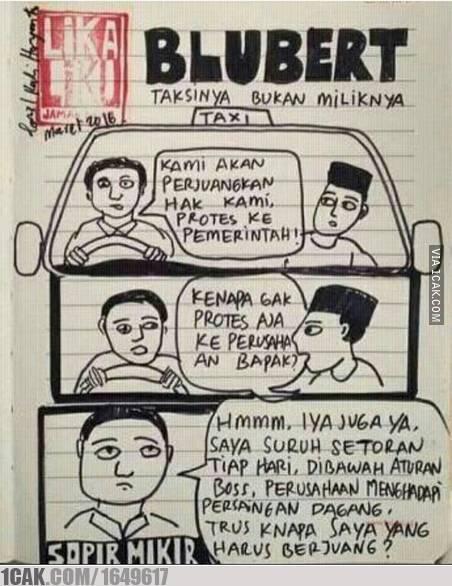 LIKA
LIKU
JAMA
Maret 2016
BLUBERT
TAKSINYA BUKAN MILIKNYA
TAXI
KAMI AKAN
PERJUANGKAN
HAK KAMI,
PROTES KE
PEMERINTAH!
KENAPA GAK
PROTES AJA
KE PERUSAHA
AN BAPAK?
HMMM, IYA JUGA YA,
SAYA SURUH SETORAN
TIAP HARI, DIBAWAH ATURAN
BOSS, PERUSAHAAN MENGHADAPI
PERSAINGAN DAGANG,
TRUS KNAPA SAYA YANG
HARUS BERJUANG?
SOPIR MIKIR
VIA 1CAK.COM
1CAK.COM/1649617